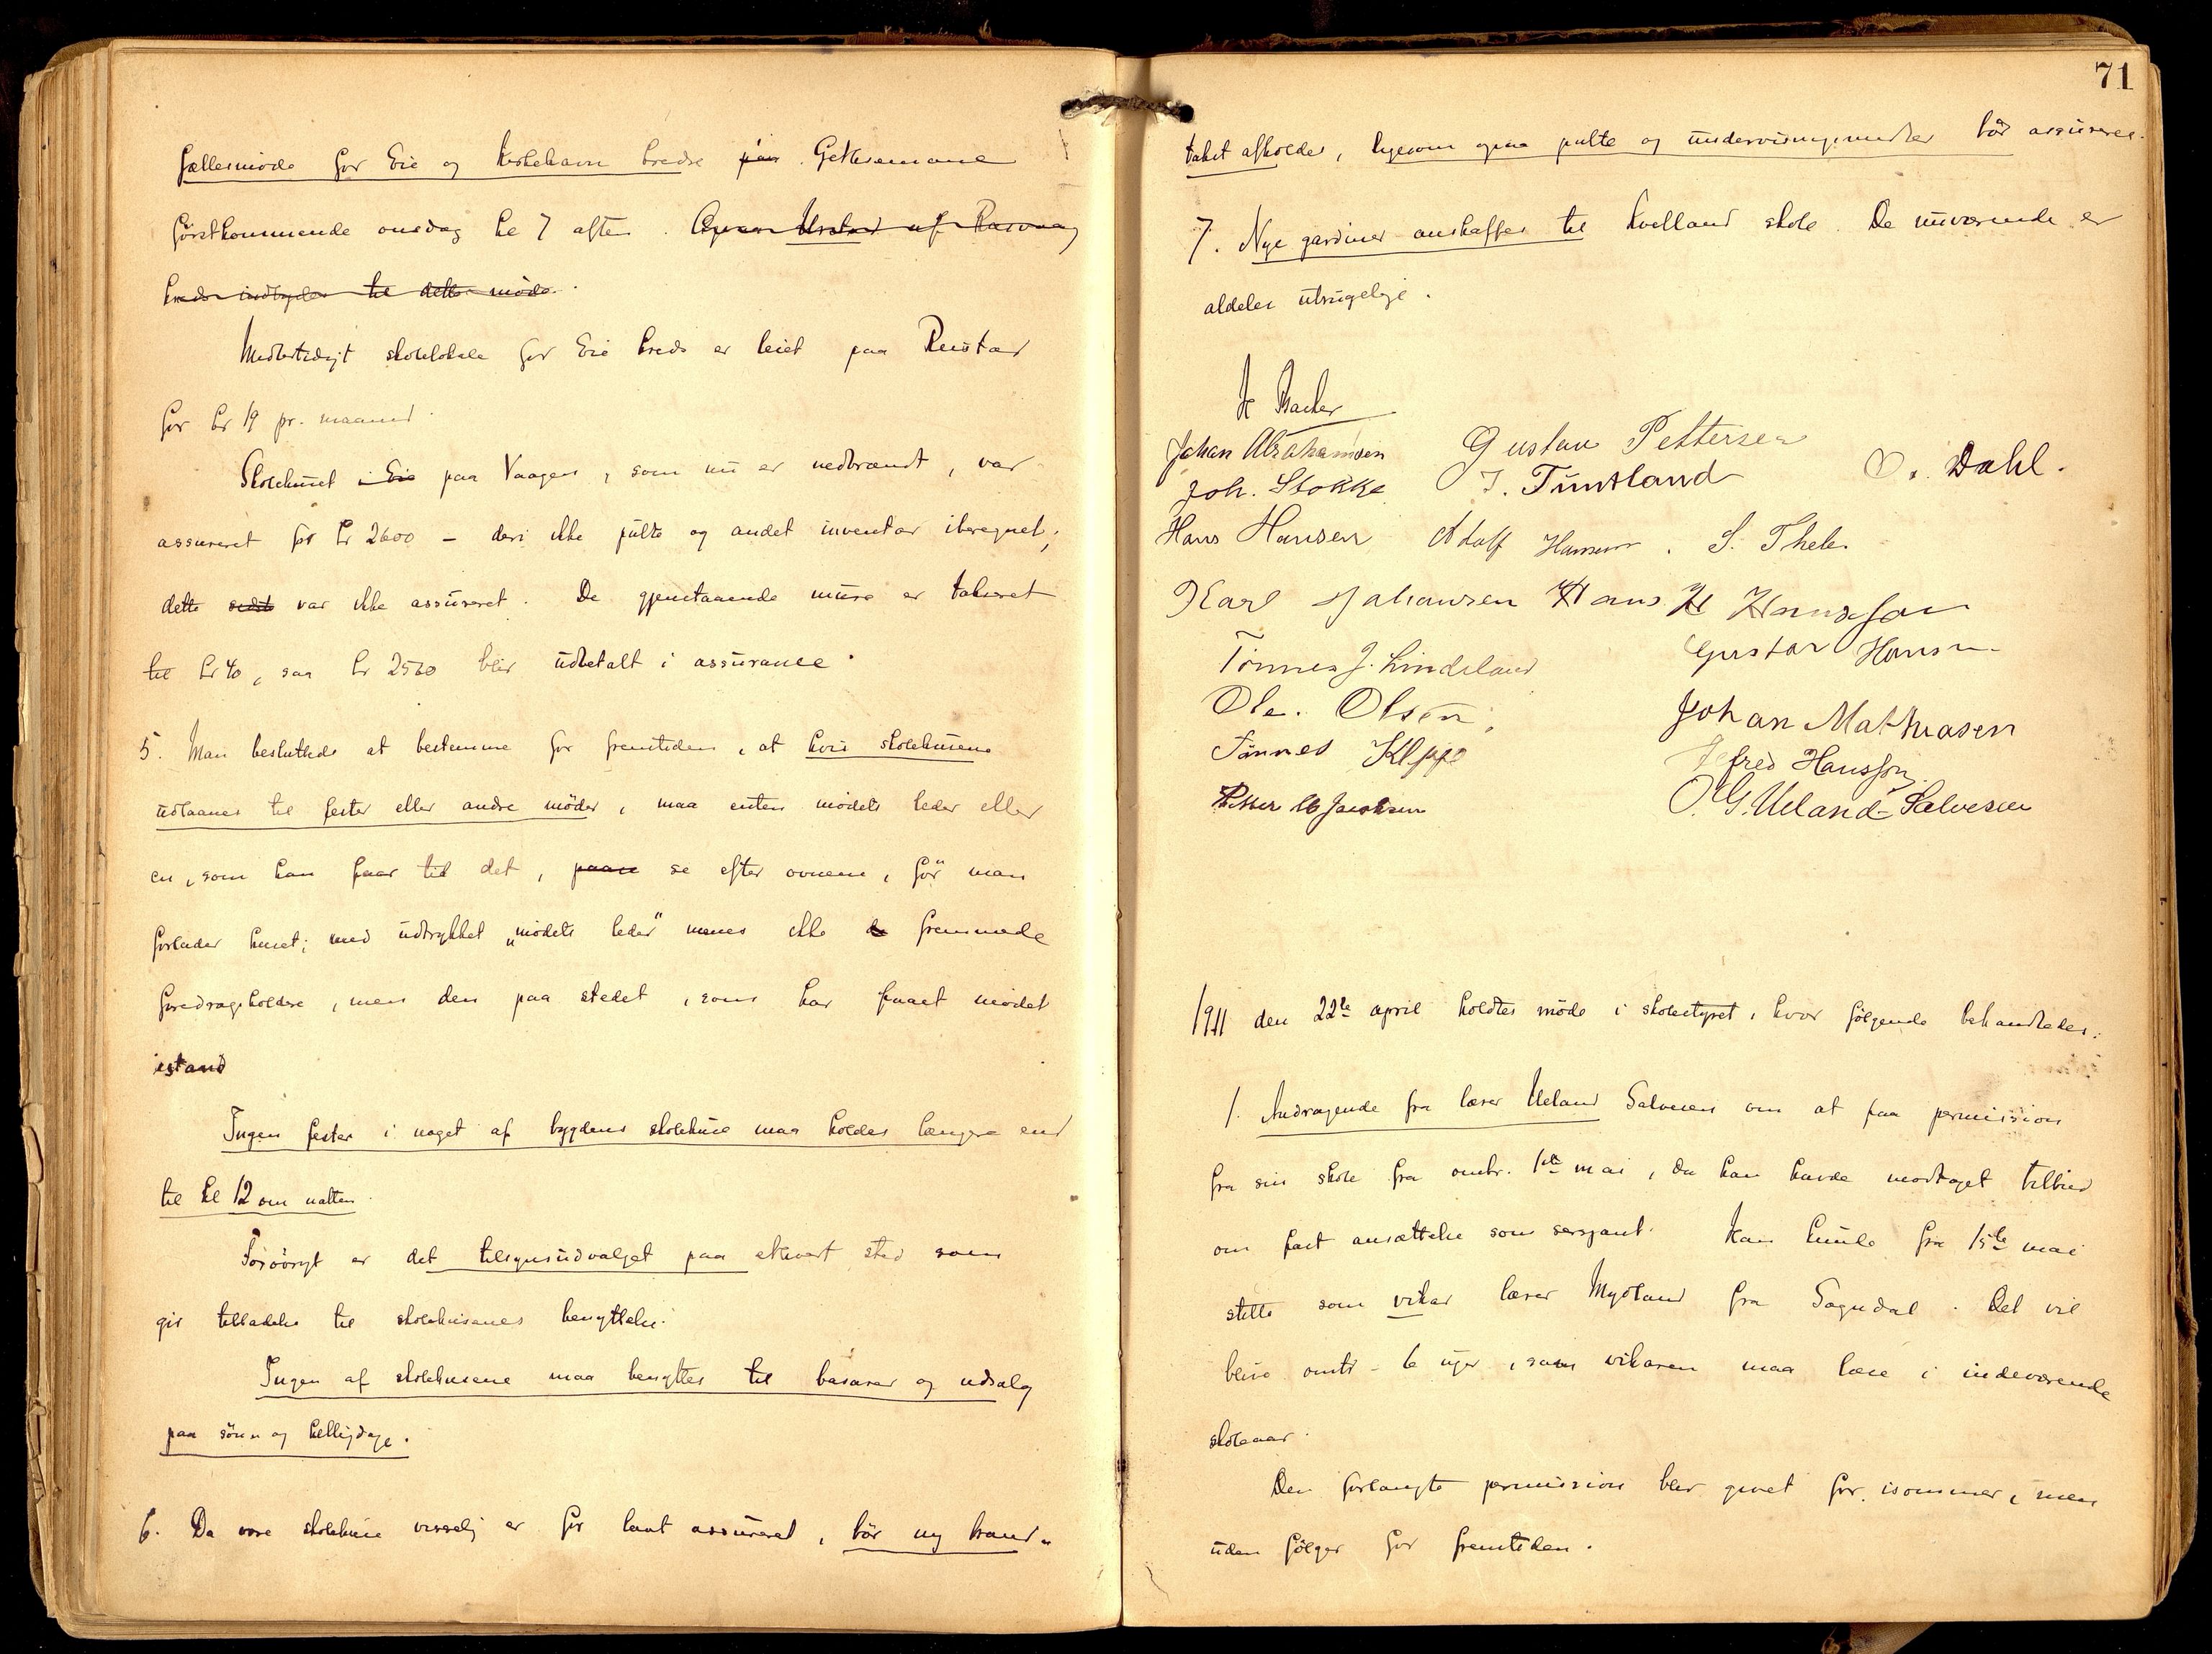 fællesmöde for Eie og Kirkehavn kredse paa Gethsemane
förstkommende onsdag kl 7 aften. Ogsaa Urstad af Rasvaag
kreds indbydes til dette möde.
Midlertidigt skolelokale for Eie kreds er leiet paa Rustad
for kr 19 pr. maaned.
Skolehuset i Eie paa Vaagen, som nu er nedbrændt, var
assureret for kr 2600 – deri ikke pulte og andet inventar iberegnet;
dette sidste var ikke assureret. De gjenstaaende mure er takseret
til kr 40, saa kr 2560 blir udbetalt i assurance.
5. Man besluttede at bestemme for fremtiden, at hvis skolehusene
udlaanes til fester eller andre möder, maa enten mödets leder eller
en, som han faar til det, paase se efter ovnene, för man
forlader huset; med udtrykket „mödets leder" menes ikke de fremmede
foredragsholdere, men den paa stedet, som har faaet mödet
istand
Ingen fester i noget af bygdens skolehuse maa holdes længere end
til kl 12 om natten.
Forövrigt er det tilsynsudvalget paa ethvert sted som
gir tilladelse til skolehusenes benyttelse.
Ingen af skolehusene maa benyttes til basarer og udsalg
paa sönn og helligdage.
6. Da vore skolehuse visselig er for lavt assureret, bör ny brand-
71
takst afholdes, ligesom ogsaa pulte og undervisningsmidler bör assureres.
7. Nye gardiner anskaffes til Kvelland skole. De nuværende er
aldeles ubrugelige.
Johan Abrahamsen Gustav Pettersen
Joh. Stokke J. Tuntland O. Dahl.
Hans Hansen Adolf Hansen. S. Thele.
Karl Johansen Hans H Hansson
Tönnes J. Lindeland Gustav Hansen
Ole. Olsen. Johan Mathiasen
Tönnes Kleppe
Hansson.
Petter Jacobsen O. G. Ueland-Salvesen
1911 den 22de april holdtes möde i skolestyret, hvor fölgende behandledes:
1. Andragende fra lærer Ueland Salvesen om at faa permission
fra sin skole fra omkr. 1ste mai, da han havde modtaget tilbud
om fast ansættelse som sersjant. Han kunde fra 15de mai
stille som vikar lærer Mydland fra Sogndal. Det vil
blive omtr. 6 uger, som vikaren maa læse i indeværende
skoleaar.
Den forlangte permission blev givet for isommer, men
uden fölger for fremtiden.